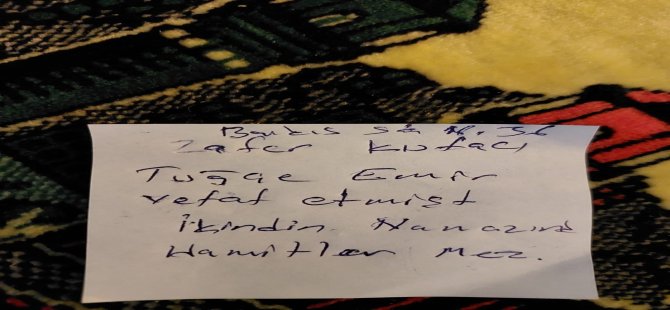 Barkıs sk N. 36
Zafer Kıracı
Tuğçe Emir
vefat etmişt
İkindin Namazını
Hamitler Mez.